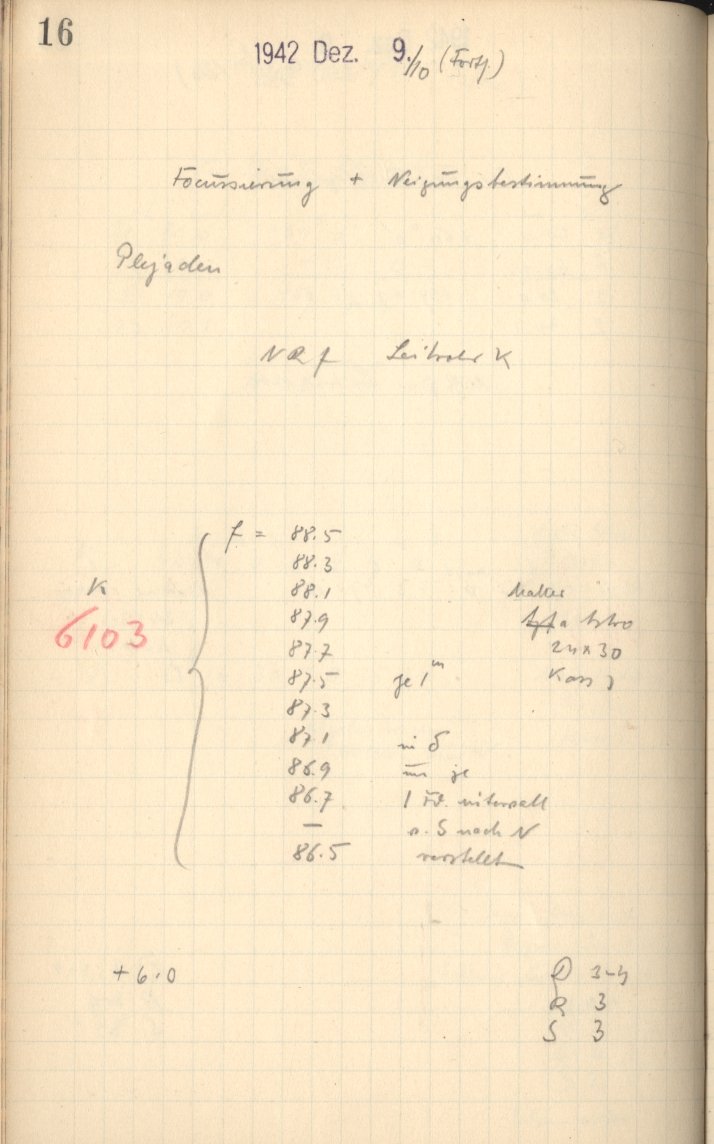 16
1942 Dez. 9./10 (Forts.)
Focussierung + Neigungsbestimmung
Plejaden
Leitrohr K
f = 88.5
88.3
K
88.1
6103
87.9
87.7
24x30
87.5 je 1ᵐ
Kass
87.3
87.1 in δ
86.9 um je
86.7 1 Fd. intervall
— n. S nach N
86.5 verstellt
+6.0
3-4
R 3
S 3